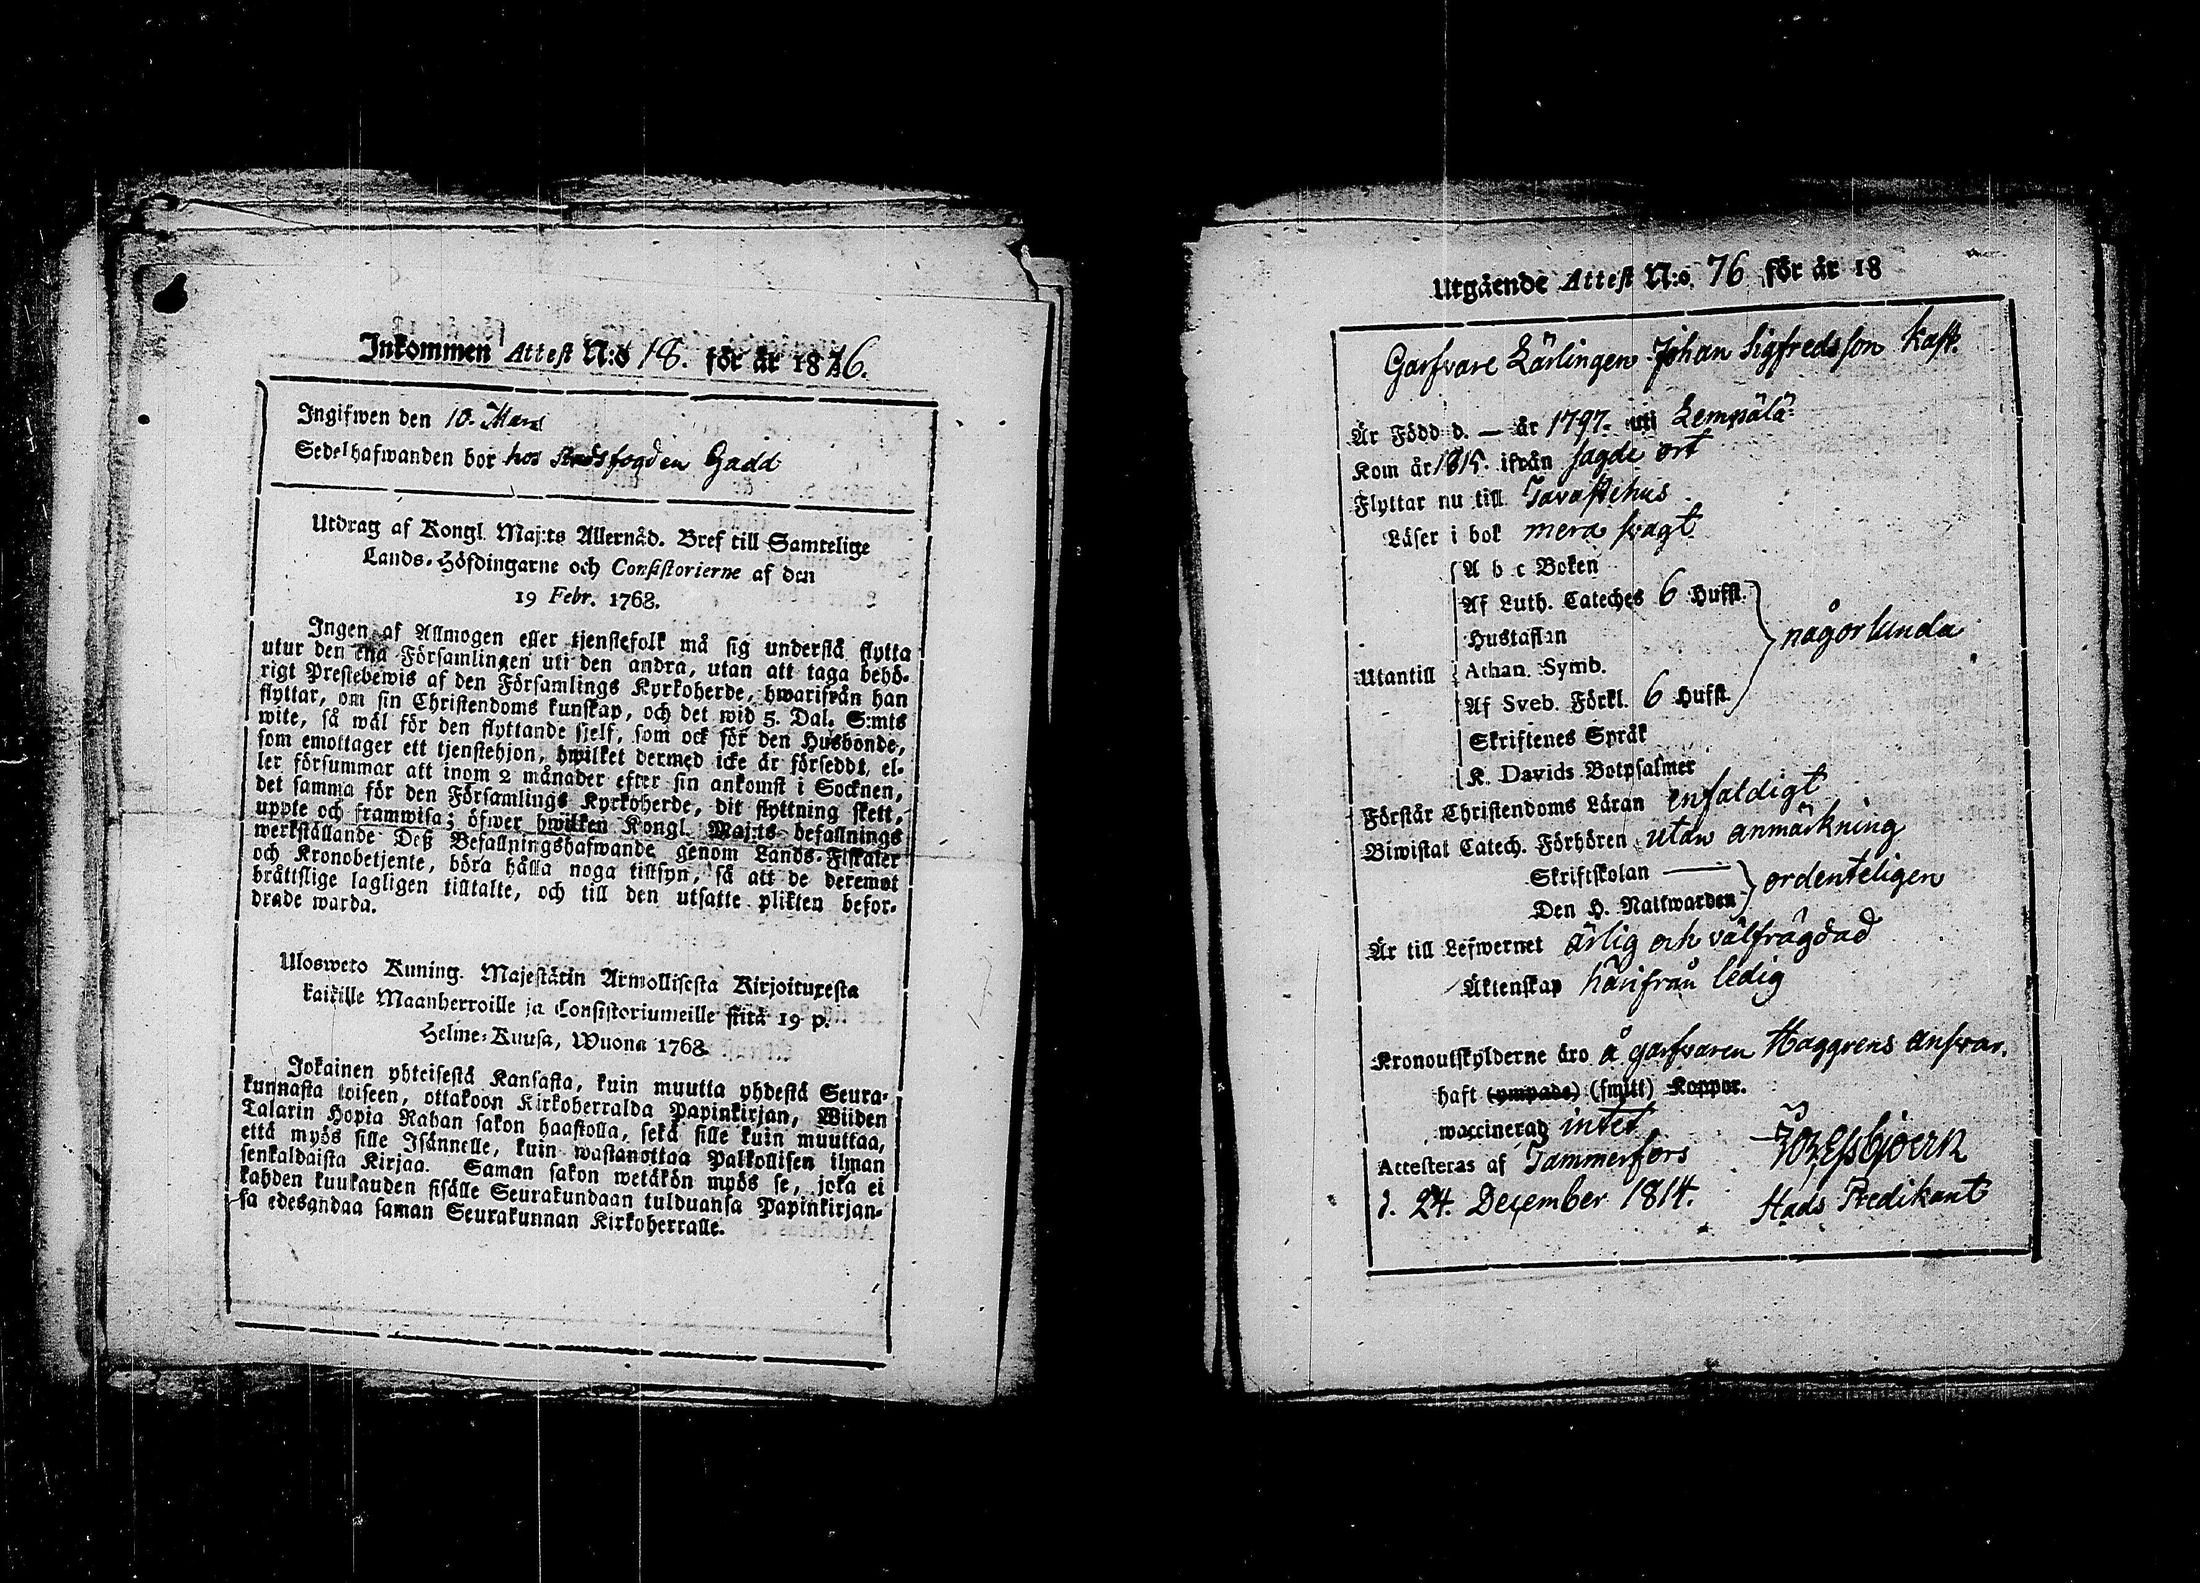 Inkommen Attest N:o 18. för år 1816.
Ingifwen den 10. Mars
Sedelhafwanden bor hos Stadsfogden Gadd
Utdrag af Kongl. Maj:ts Allernåd. Bref till Samtelige
Lands-Höfdingarne och Consistorierne af den
19 Febr. 1768.
Ingen af Allmogen eller tjenstefolk må sig understå flytta
utur den ena Församlingen uti den andra, utan att taga behö-
rigt Prestebewis af den Församlings Kyrkoherde, hwarifrån han
flyttar, om sin Christendoms kunskap, och det wid 5. Dal. S:mts
wite, så wäl för den flyttande sjelf, som ock för den Husbonde,
som emottager ett tjenstehjon, hwilket dermed icke är förseddt, el-
ler försummar att inom 2 månader efter sin ankomst i Socknen,
det samma för den Församlings Kyrkoherde, dit flyttning skett,
uppte och framwisa; öfwer hwilken Kongl. Maj:ts befallnings
werkställande Deß Befallningshafwande genom Lands-Fiskaler
och Kronobetjente, böra hålla noga tillsyn, så att de deremot
bråttslige lagligen tilltalte, och till den utsatte plikten befor-
drade warda.
Ulosweto Kuning. Majestätin Armollisesta Kirjoituxesta
kaikille Maanherroille ja Consistoriumeille siitä 19 p.
Helme-Kuusa, Wuona 1768.
Jokainen yhteisestä Kansasta, kuin muutta yhdestä Seura-
kunnasta toiseen, ottakoon Kirkoherralda Papinkirjan, Wiiden
Talarin Hopia Rahan sakon haastolla, sekä sille kuin muuttaa,
että myös sille Isännelle, kuin wastanottaa Palkollisen ilman
senkaldaista Kirjaa. Saman sakon wetäkön myös se, joka ei
kahden kuukauden sisälle Seurakundaan tulduansa Papinkirjan-
sa edesandaa saman Seurakunnan Kirkoherralle.
Utgående Attest N:o. 76 för år 18
Garfvare Lärlingen Johan Sigfredsson Kask.
Är Född d. — år 1797. uti Lempälä
Kom år 1815. ifrån sagde ort
Flyttar nu till Tavastehus
Läser i bok mera svagt
A b c Boken
Af Luth. Cateches 6 Hufst.
Hustaflan
Utantill Athan. Symb. någorlunda
Af Sveb. Förkl. 6 Hufst.
Skriftenes Språk
K. Davids Botpsalmer
Förstår Christendoms Läran enfaldigt
Biwistat Catech. Förhören utan anmärkning
Skriftskolan —
Den H. Nattwarden ordenteligen
Är till Lefwernet ärlig och välfrägdad
Äktenskap härifrån ledig
Kronoutskylderne äro å garfvaren Haggrens ansvar.
haft (ympade) (smitt) Koppor.
waccinerad intet
Attesteras af Tammerfors
d. 24. December 1814. Stads Predikant